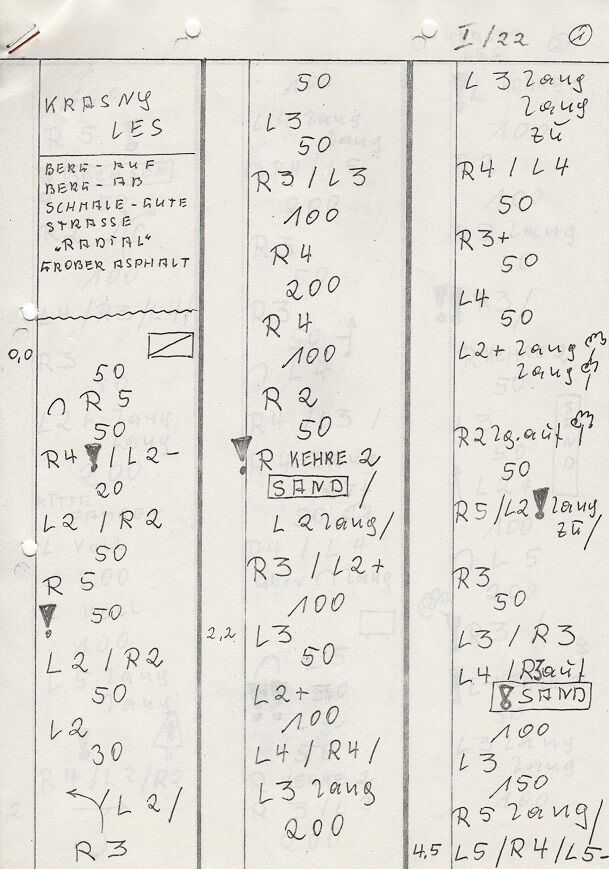 I/22 1
KRASNY
LES
BERG-AUF
BERG-AB
SCHMALE-GUTE
STRASSE
"RADIAL"
GROßER ASPHALT
0,0
50
R 5
50
R4 ! / L2-
20
L2 / R2
50
R 5
! 50
L2 / R2
50
L2
30
/ L2 /
R3
50
L3
50
R3 / L3
100
R4
200
R4
100
R2
50
! R KEHRE 2
SAND /
L2 lang /
R3 / L2+
100
2,2 L3
50
L2+
100
L4 / R4 /
L3 lang
200
L3 lang
lang
zu
R4 / L4
50
R3+
50
L4
50
L2+ lang
lang
R2 lg. auf
50
R5 / L2 ! lang
zu /
R3
50
L3 / R3
L4 / R3 auf
! SAND
100
L3
150
R5 lang /
4,5 L5 / R4 / L5-